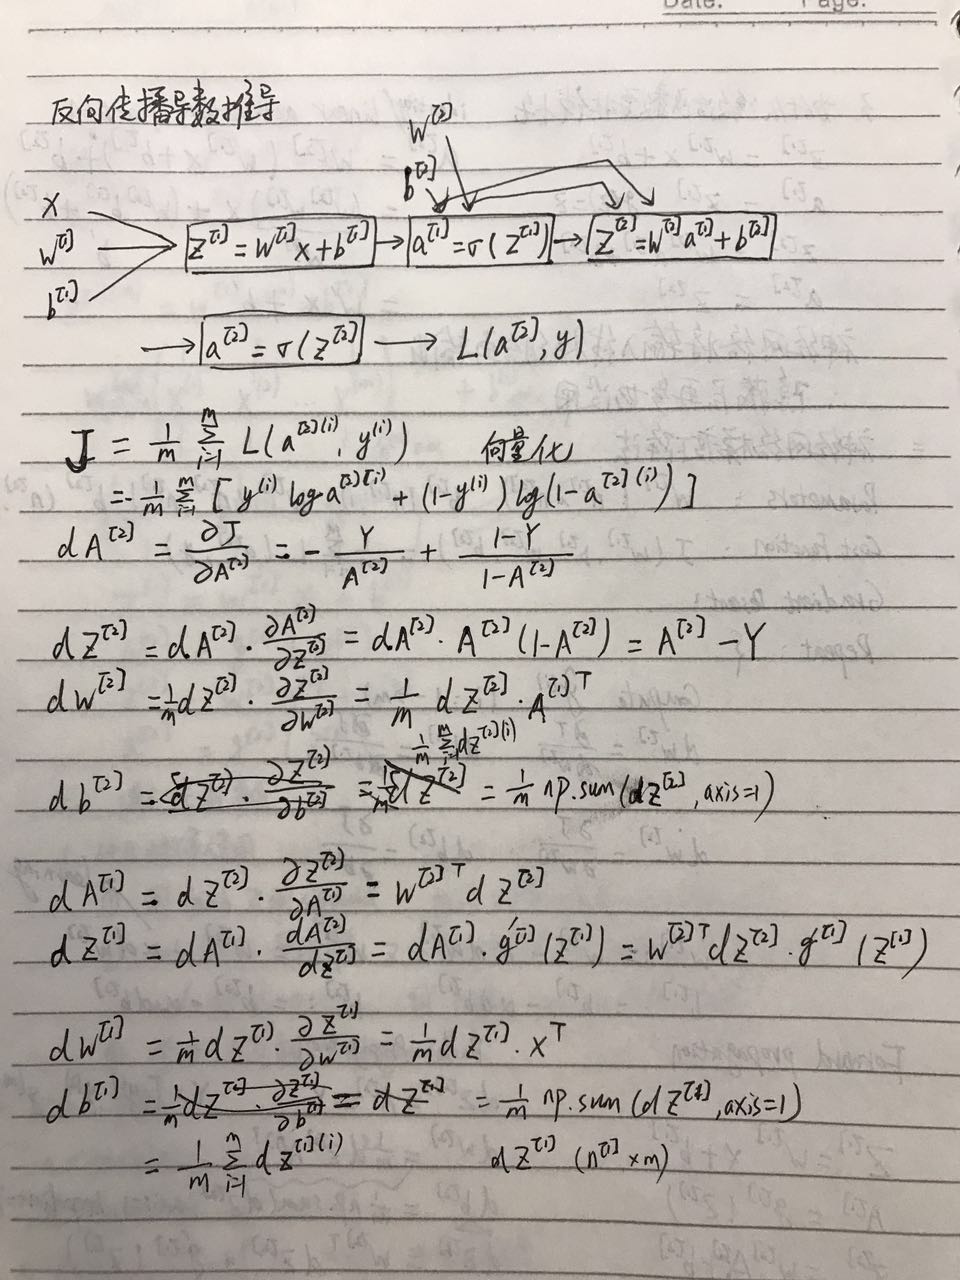 Date. Page.
反向传播导数推导
W^[2]
b^[2]
x
W^[1]
b^[1]
z^[1] = W^[1] x + b^[1] → a^[1] = σ(z^[1]) → z^[2] = W^[2] a^[1] + b^[2]
→ a^[2] = σ(z^[2]) → L(a^[2], y)
J = 1/m Σ_{i=1}^{m} L(a^[2](i), y^(i)) 向量化
= -1/m Σ_{i=1}^{m} [ y^(i) log a^[2](i) + (1-y^(i)) log(1-a^[2](i)) ]
dA^[2] = ∂J/∂A^[2] = - Y/A^[2] + (1-Y)/(1-A^[2])
dz^[2] = dA^[2] · ∂A^[2]/∂z^[2] = dA^[2] · A^[2] (1-A^[2]) = A^[2] - Y
dW^[2] = 1/m dz^[2] · ∂z^[2]/∂W^[2] = 1/m dz^[2] · A^[1]T
1/m Σ_{i=1}^{m} dz^[2](i)
db^[2] = dz^[2] · ∂z^[2]/∂b^[2] = 1/m dz^[2] = 1/m np.sum(dz^[2], axis=1)
dA^[1] = dz^[2] · ∂z^[2]/∂A^[1] = W^[2]T dz^[2]
dz^[1] = dA^[1] · dA^[2]/dz^[1] = dA^[1] · g'^[1](z^[1]) = W^[2]T dz^[2] · g'^[1](z^[1])
dW^[1] = 1/m dz^[1] · ∂z^[1]/∂W^[1] = 1/m dz^[1] · x^T
db^[1] = 1/m dz^[1] · ∂z^[1]/∂b^[1] = dz^[1] = 1/m np.sum(dz^[1], axis=1)
= 1/m Σ_{i=1}^{m} dz^[1](i) dz^[1] (n^[1] × m)